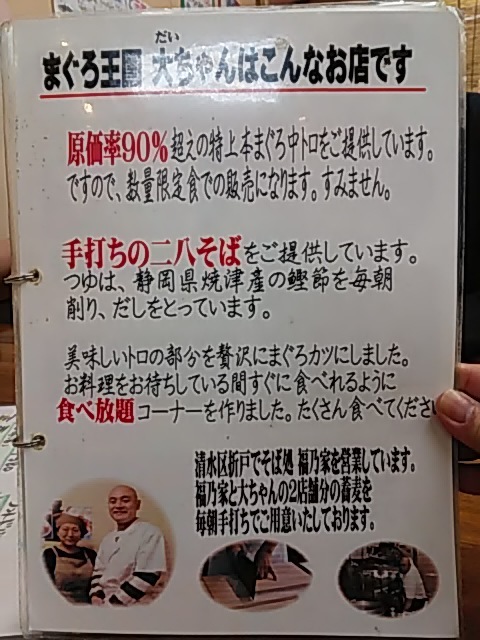 まぐろ王国 大ちゃんはこんなお店です
だい
原価率90%超えの特上本まぐろ中トロをご提供しています。
ですので、数量限定食での販売になります。すみません。
手打ちの二八そばをご提供しています。
つゆは、静岡県焼津産の鰹節を毎朝
削り、だしをとっています。
美味しいトロの部分を贅沢にまぐろカツにしました。
お料理をお待ちしている間すぐに食べれるように
食べ放題コーナーを作りました。たくさん食べてくださ
清水区折戸でそば処 福乃家を営業しています。
福乃家と大ちゃんの2店舗分の蕎麦を
毎朝手打ちでご用意いたしております。